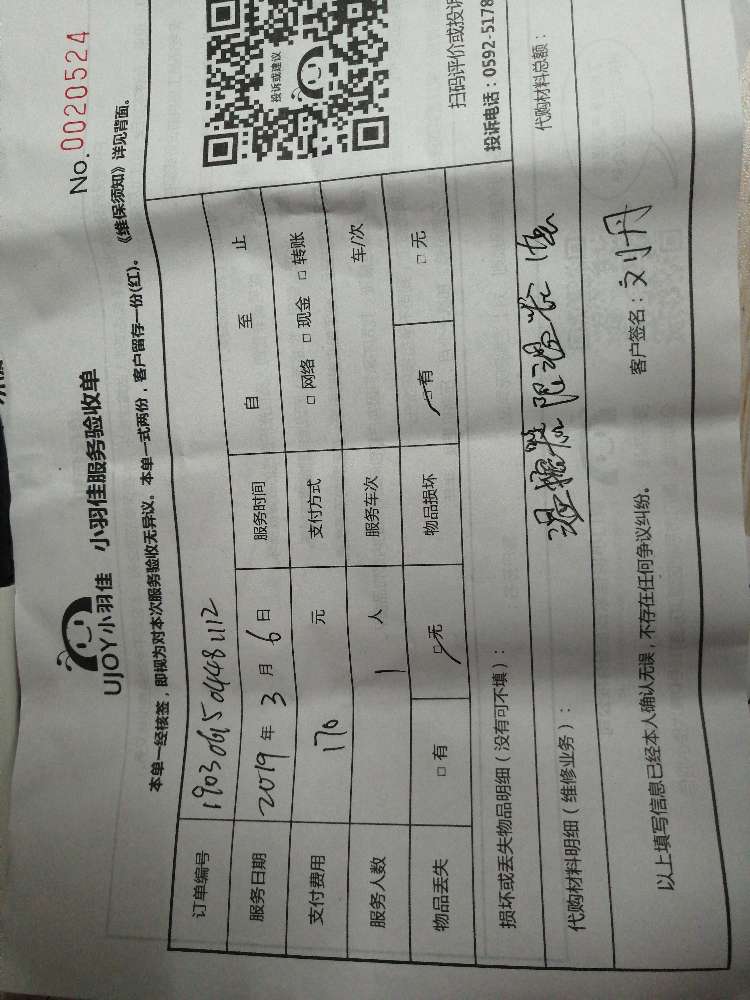 No.0020524
UJOY小羽佳 小羽佳服务验收单
本单一经核签，即视为对本次服务验收无异议。本单一式两份，客户留存一份(红)。《维保须知》详见背面。
订单编号
服务日期 2019年3月6日 服务时间 自 至 止
支付费用 170 元 支付方式 □ 网络 □ 现金 □ 转账
服务人数 1 人 服务车次 车/次
物品丢失 □ 有 □ 无 物品损坏 □ 有 □ 无
投诉或建议
扫码评价或投诉
投诉电话：0592-5178
损坏或丢失物品明细（没有可不填）：
代购材料明细（维修业务）： 代购材料总额：
以上填写信息已经本人确认无误，不存在任何争议纠纷。 客户签名：刘丹